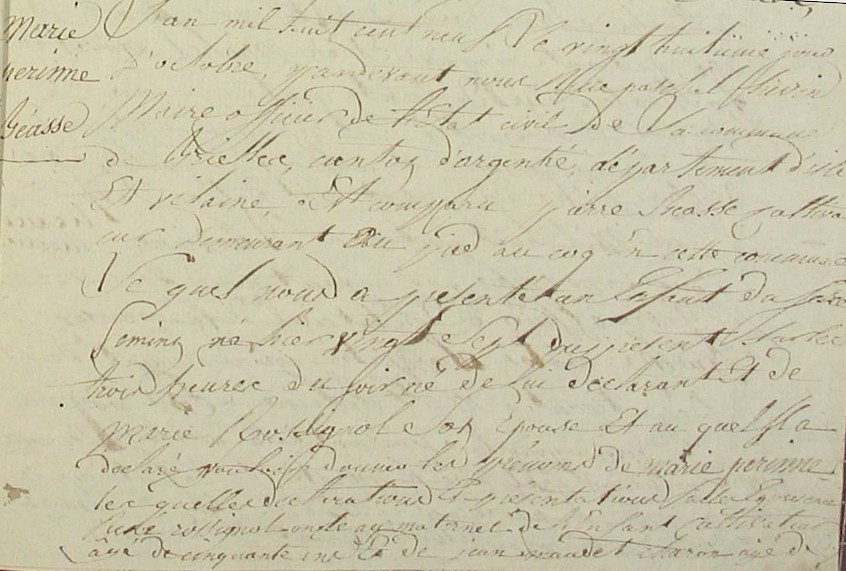 Marie
perinne
Béasse
L'an mil huit cent neuf Le vingt huitieme jour
d'octobre, pardevant nous
Maire officier de l'Etat civil De La commune
de Brielles, canton d'argentré, département d'ille
Et vilaine, Est comparu pierre Beasse cultiva
eur Demeurant Au jad au coq En cette commune
Le quel nous a presenté un Enfant du sexe
feminin né hier vingt Sept du present Sur les
trois heures du soir né de lui declarant Et de
Marie Rossignol Son Epouse Et au quel Il a
declaré vouloir donner les prénoms de marie perinne
les quelles declarations Et presentations faites En presence
rossignol oncle au maternel de l'Enfant cultivateur
âgé de cinquante ans Et de jean maudet charon agé de